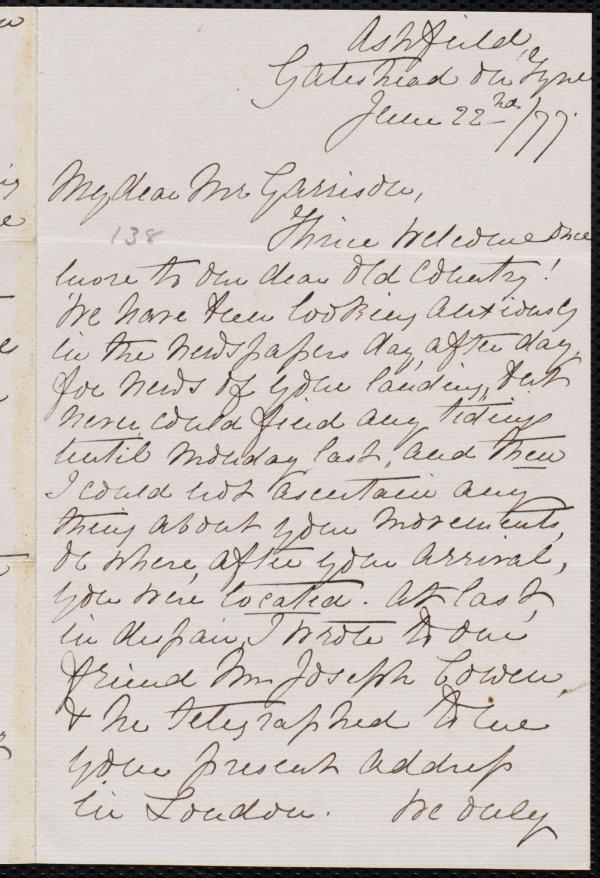 Ashfield,
Gateshead on Tyne
June 22nd/77.
My dear Mr Garrison,
138
Thrice welcome once
more to our dear Old Country!
We have been looking anxiously
in the newspapers day after day,
for news of your landing, but
never could find any tidings
until Monday last, and then
I could not ascertain any
thing about your movements,
or where, after your arrival,
you were located. At last,
in despair, I wrote to our
friend Mr Joseph Cowen,
& he telegraphed to me
your present address
in London. We only